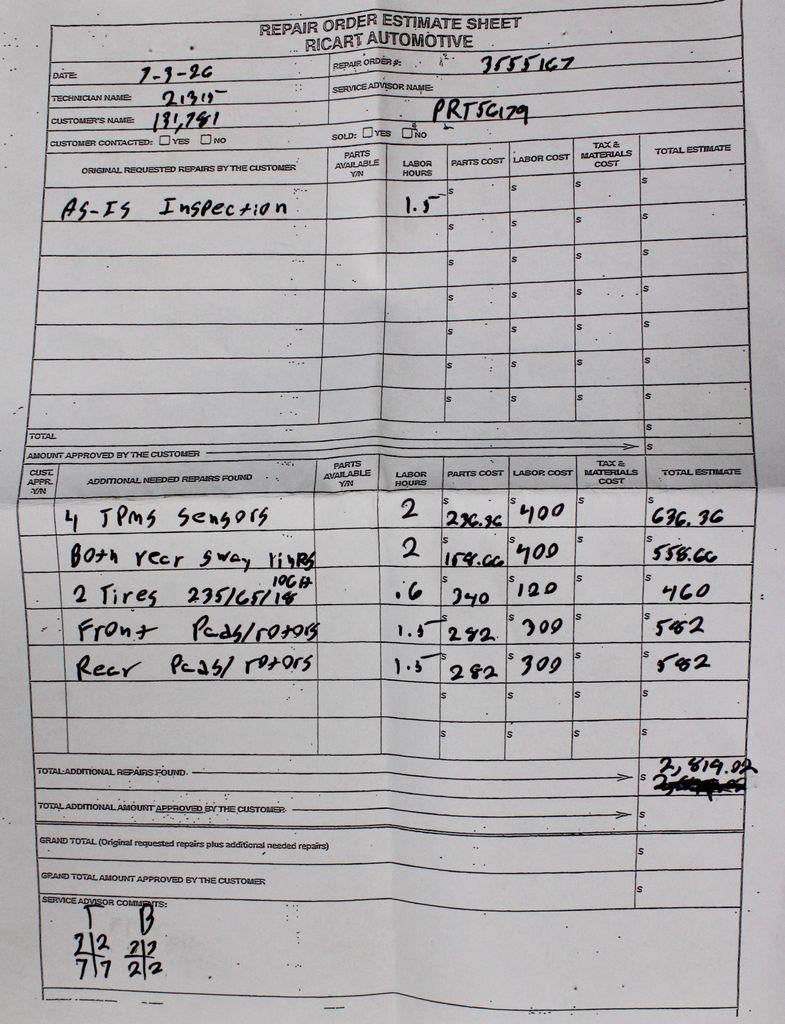 REPAIR ORDER ESTIMATE SHEET
RICART AUTOMOTIVE
DATE: 7-3-26 REPAIR ORDER #: 3555167
TECHNICIAN NAME: 21315 SERVICE ADVISOR NAME:
CUSTOMER'S NAME: 191,781 PRT56179
CUSTOMER CONTACTED: ☐ YES ☐ NO SOLD: ☐ YES ☐ NO
ORIGINAL REQUESTED REPAIRS BY THE CUSTOMER PARTS AVAILABLE Y/N LABOR HOURS PARTS COST LABOR COST TAX & MATERIALS COST TOTAL ESTIMATE
AS-IS Inspection 1.5 $ $ $ $
$ $ $ $
$ $ $ $
$ $ $ $
$ $ $ $
$ $ $ $
$ $ $ $
TOTAL $
AMOUNT APPROVED BY THE CUSTOMER $
CUST. APPR. Y/N ADDITIONAL NEEDED REPAIRS FOUND PARTS AVAILABLE Y/N LABOR HOURS PARTS COST LABOR COST TAX & MATERIALS COST TOTAL ESTIMATE
4 TPMS Sensors 2 $ 236.36 $ 400 $ $ 636.36
Both rear sway links 2 $ 158.66 $ 400 $ $ 558.66
2 Tires 235/65/18 106H .6 $ 340 $ 120 $ $ 460
Front Pads/rotors 1.5 $ 282 $ 300 $ $ 582
Rear Pads/rotors 1.5 $ 282 $ 300 $ $ 582
$ $ $ $
$ $ $ $
TOTAL ADDITIONAL REPAIRS FOUND $ 2,819.02
TOTAL ADDITIONAL AMOUNT APPROVED BY THE CUSTOMER $
GRAND TOTAL (Original requested repairs plus additional needed repairs) $
GRAND TOTAL AMOUNT APPROVED BY THE CUSTOMER $
SERVICE ADVISOR COMMENTS:
T B
2 2 2 2
7 7 2 2